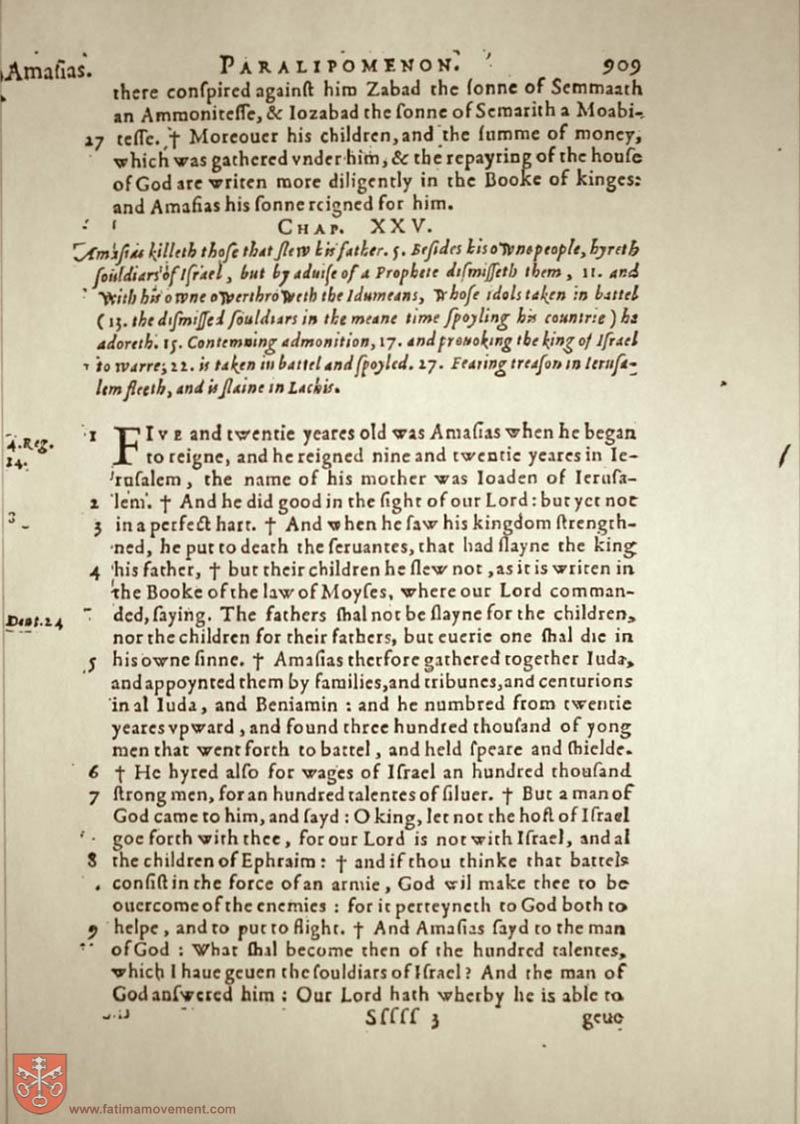 Amaſias. PARALIPOMENON. 909
there conſpired againſt him Zabad the ſonne of Semmaath
an Ammoniteſſe, & Iozabad the ſonne of Semarith a Moabi-
27 teſſe. † Moreouer his children, and the ſumme of money,
which was gathered vnder him, & the repayring of the houſe
of God are writen more diligently in the Booke of kinges:
and Amaſias his ſonne reigned for him.
CHAP. XXV.
Amaſias killeth thoſe that ſlew his father. 5. Beſides his owne people, hyreth
ſouldiars of Iſrael, but by aduiſe of a Prophete diſmiſſeth them, 11. and
with his owne overthroweth the Idumeans, whoſe idols taken in battel
(13. the diſmiſſed ſouldiars in the meane time ſpoyling his countrie) he
adoreth. 15. Contemning admonition, 17. and prouoking the king of Iſrael
to warre, 22. is taken in battel and ſpoyled. 27. Fearing treaſon in Ieruſa-
lem fleeth, and is ſlaine in Lachis.
4.Reg. 1 FIVE and twentie yeares old was Amaſias when he began
14. to reigne, and he reigned nine and twentie yeares in Ie-
ruſalem, the name of his mother was Ioaden of Ieruſa-
2 lem. † And he did good in the ſight of our Lord: but yet not
3 in a perfect hart. † And when he ſaw his kingdom ſtrength-
ned, he put to death the ſeruantes, that had ſlayne the king
4 his father, † but their children he ſlew not, as it is writen in
the Booke of the law of Moyſes, where our Lord comman-
Deut.24 ded, ſaying. The fathers ſhal not be ſlayne for the children,
nor the children for their fathers, but euerie one ſhal die in
5 his owne ſinne. † Amaſias therfore gathered together Iuda,
and appoynted them by families, and tribunes, and centurions
in al Iuda, and Beniamin : and he numbred from twentie
yeares vpward, and found three hundred thouſand of yong
men that went forth to battel, and held ſpeare and ſhielde.
6 † He hyred alſo for wages of Iſrael an hundred thouſand
7 ſtrong men, for an hundred talentes of ſiluer. † But a man of
God came to him, and ſayd : O king, let not the hoſt of Iſrael
goe forth with thee, for our Lord is not with Iſrael, and al
8 the children of Ephraim : † and if thou thinke that battels
conſiſt in the force of an armie, God wil make thee to be
ouercome of the enemies : for it perteyneth to God both to
9 helpe, and to put to flight. † And Amaſias ſayd to the man
of God : What ſhal become then of the hundred talentes,
which I haue geuen the ſouldiars of Iſrael? And the man of
God anſwered him : Our Lord hath wherby he is able to
Sſſſſ 3 geue
www.fatimamovement.com